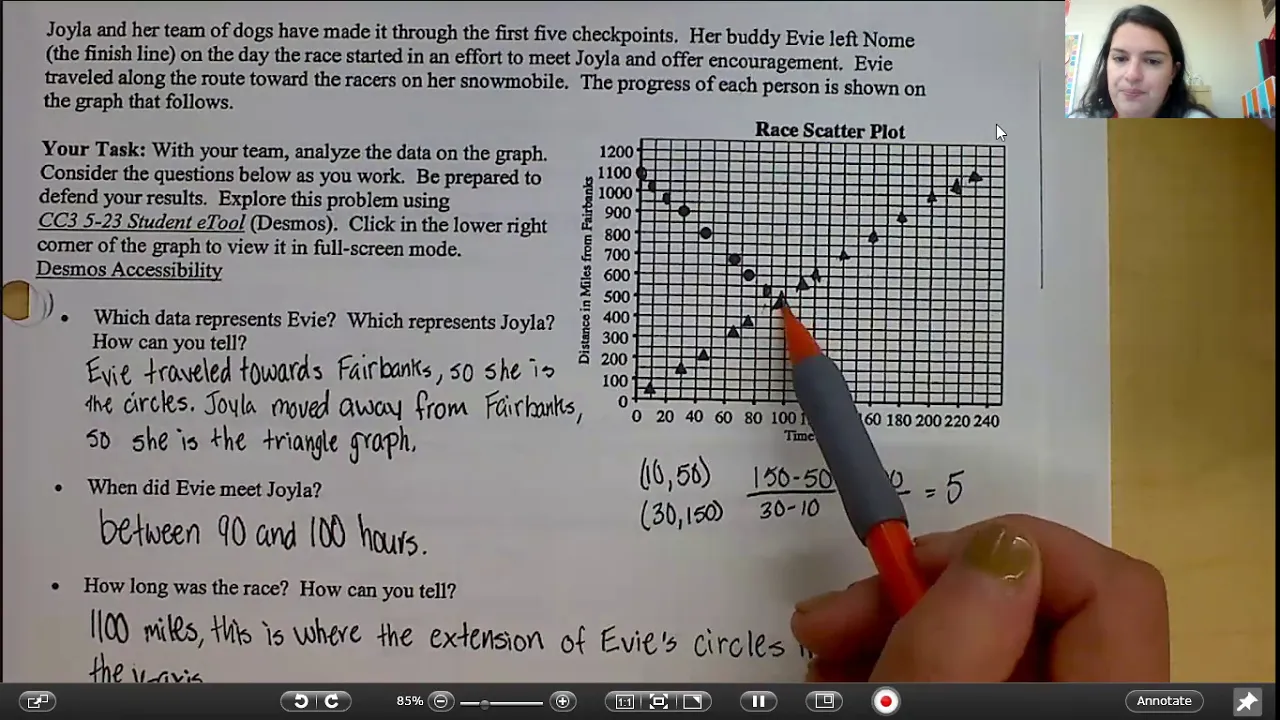 Joyla and her team of dogs have made it through the first five checkpoints. Her buddy Evie left Nome
(the finish line) on the day the race started in an effort to meet Joyla and offer encouragement. Evie
traveled along the route toward the racers on her snowmobile. The progress of each person is shown on
the graph that follows.
Your Task: With your team, analyze the data on the graph.
Consider the questions below as you work. Be prepared to
defend your results. Explore this problem using
CC3 5-23 Student eTool (Desmos). Click in the lower right
corner of the graph to view it in full-screen mode.
Desmos Accessibility
• Which data represents Evie? Which represents Joyla?
How can you tell?
Evie traveled towards Fairbanks, so she is
the circles. Joyla moved away from Fairbanks,
so she is the triangle graph.
• When did Evie meet Joyla?
between 90 and 100 hours.
• How long was the race? How can you tell?
1100 miles, this is where the extension of Evie's circles
the y-axis
Race Scatter Plot
Distance in Miles from Fairbanks
1200
1100
1000
900
800
700
600
500
400
300
200
100
0
0 20 40 60 80 100 1 60 180 200 220 240
Time
(10,50)
(30,150)
150-50
30-10
0
= 5
85%
1:1
Annotate